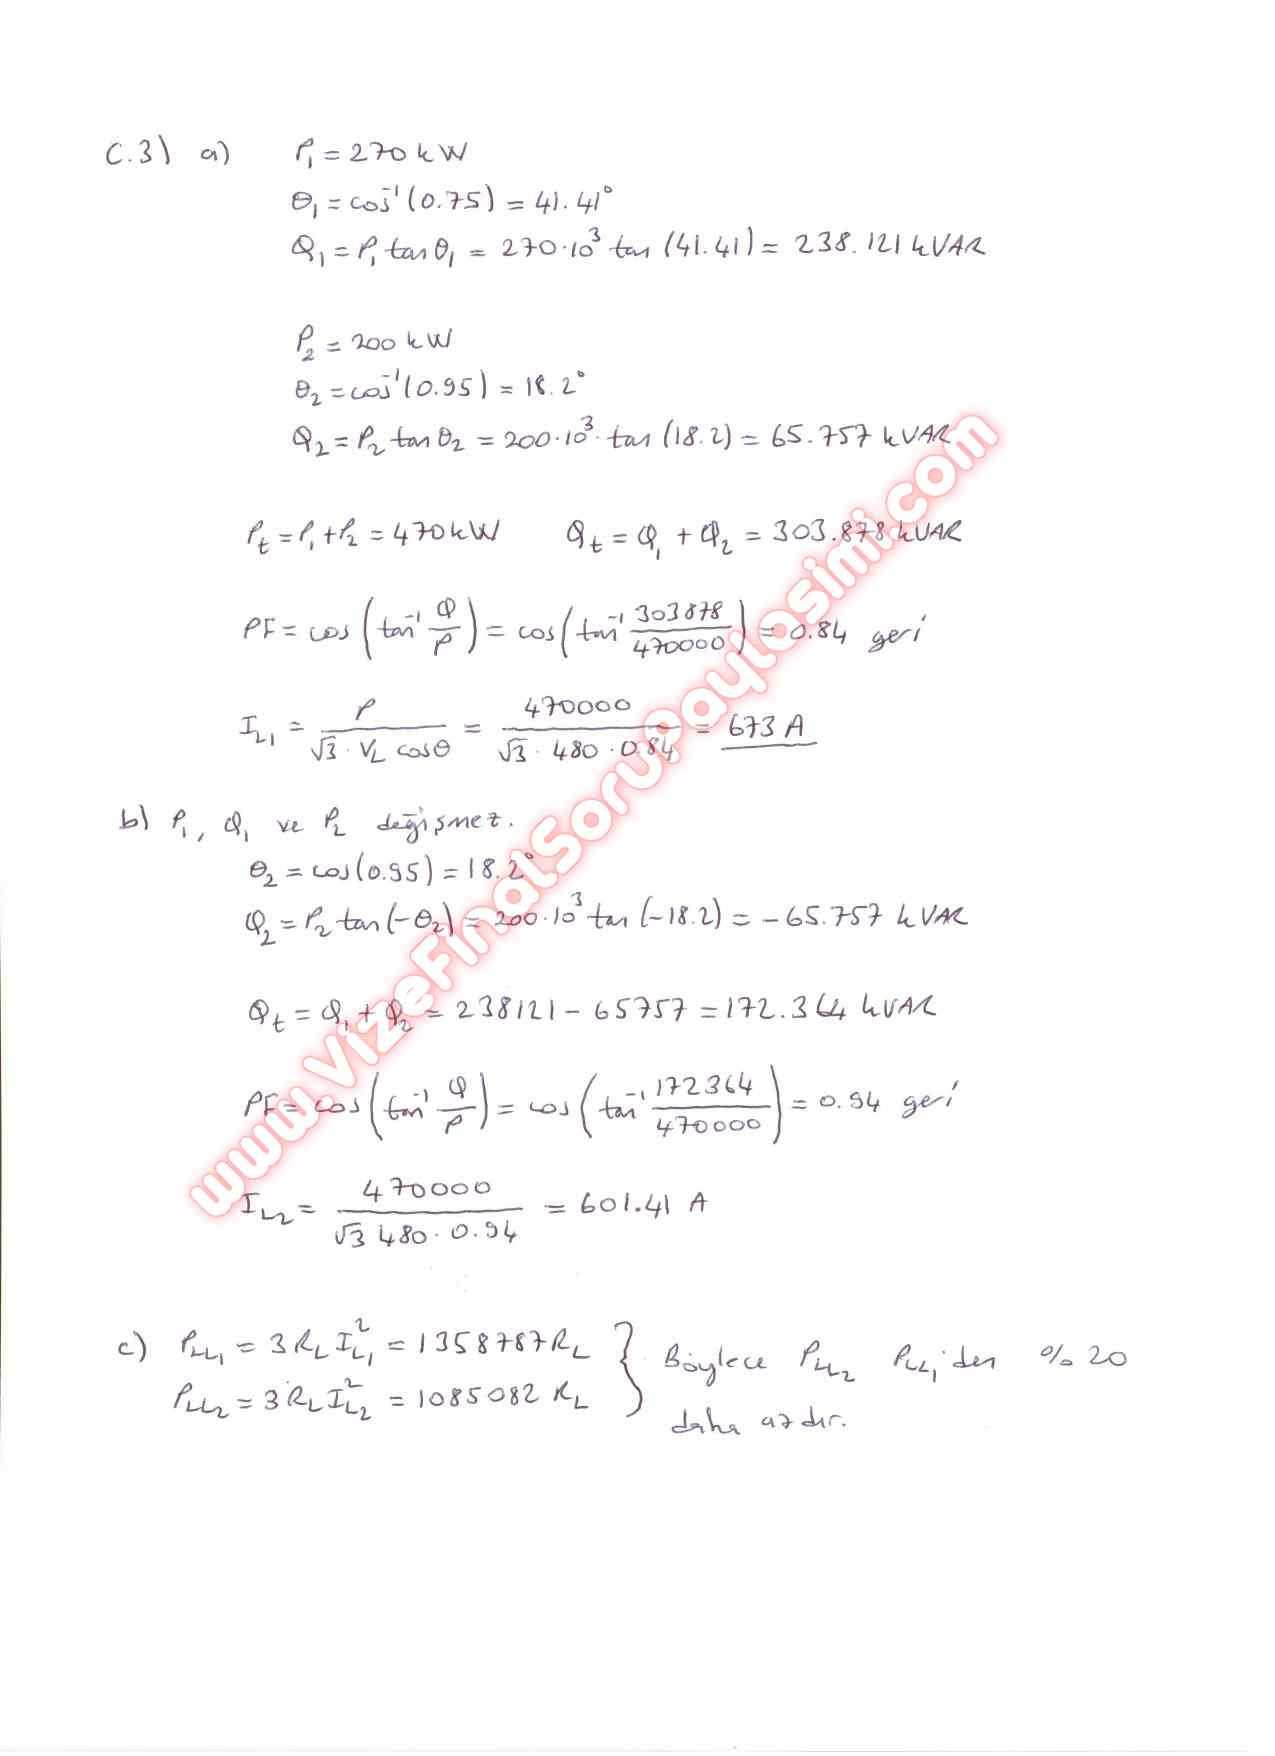 C.3) a) P₁ = 270 kW
θ₁ = cos⁻¹(0.75) = 41.41°
Q₁ = P₁ tan θ₁ = 270·10³ tan (41.41) = 238.121 kVAR
P₂ = 200 kW
θ₂ = cos⁻¹(0.95) = 18.2°
Q₂ = P₂ tan θ₂ = 200·10³· tan (18.2) = 65.757 kVAR
Pt = P₁ + P₂ = 470 kW Qt = Q₁ + Q₂ = 303.878 kVAR
PF = cos (tan⁻¹ Q/P) = cos (tan⁻¹ 303878/470000) = 0.84 geri
IL₁ = P/(√3 · VL cosθ) = 470000/(√3 · 480 · 0.84) = 673 A
b) P₁, Q₁ ve P₂ değişmez.
θ₂ = cos(0.95) = 18.2°
Q₂ = P₂ tan(-θ₂) = 200·10³ tan (-18.2) = -65.757 kVAR
Qt = Q₁ + Q₂ = 238121 - 65757 = 172.364 kVAR
PF = cos (tan⁻¹ Q/P) = cos (tan⁻¹ 172364/470000) = 0.94 geri
IL₂ = 470000/(√3 480 · 0.94) = 601.41 A
c) PLL₁ = 3 RL IL₁² = 1358787 RL } Böylece PLL₂ PLL₁'den %20
PLL₂ = 3 RL IL₂² = 1085082 RL daha azdır.
www.VizeFinalSoruPaylasimi.com